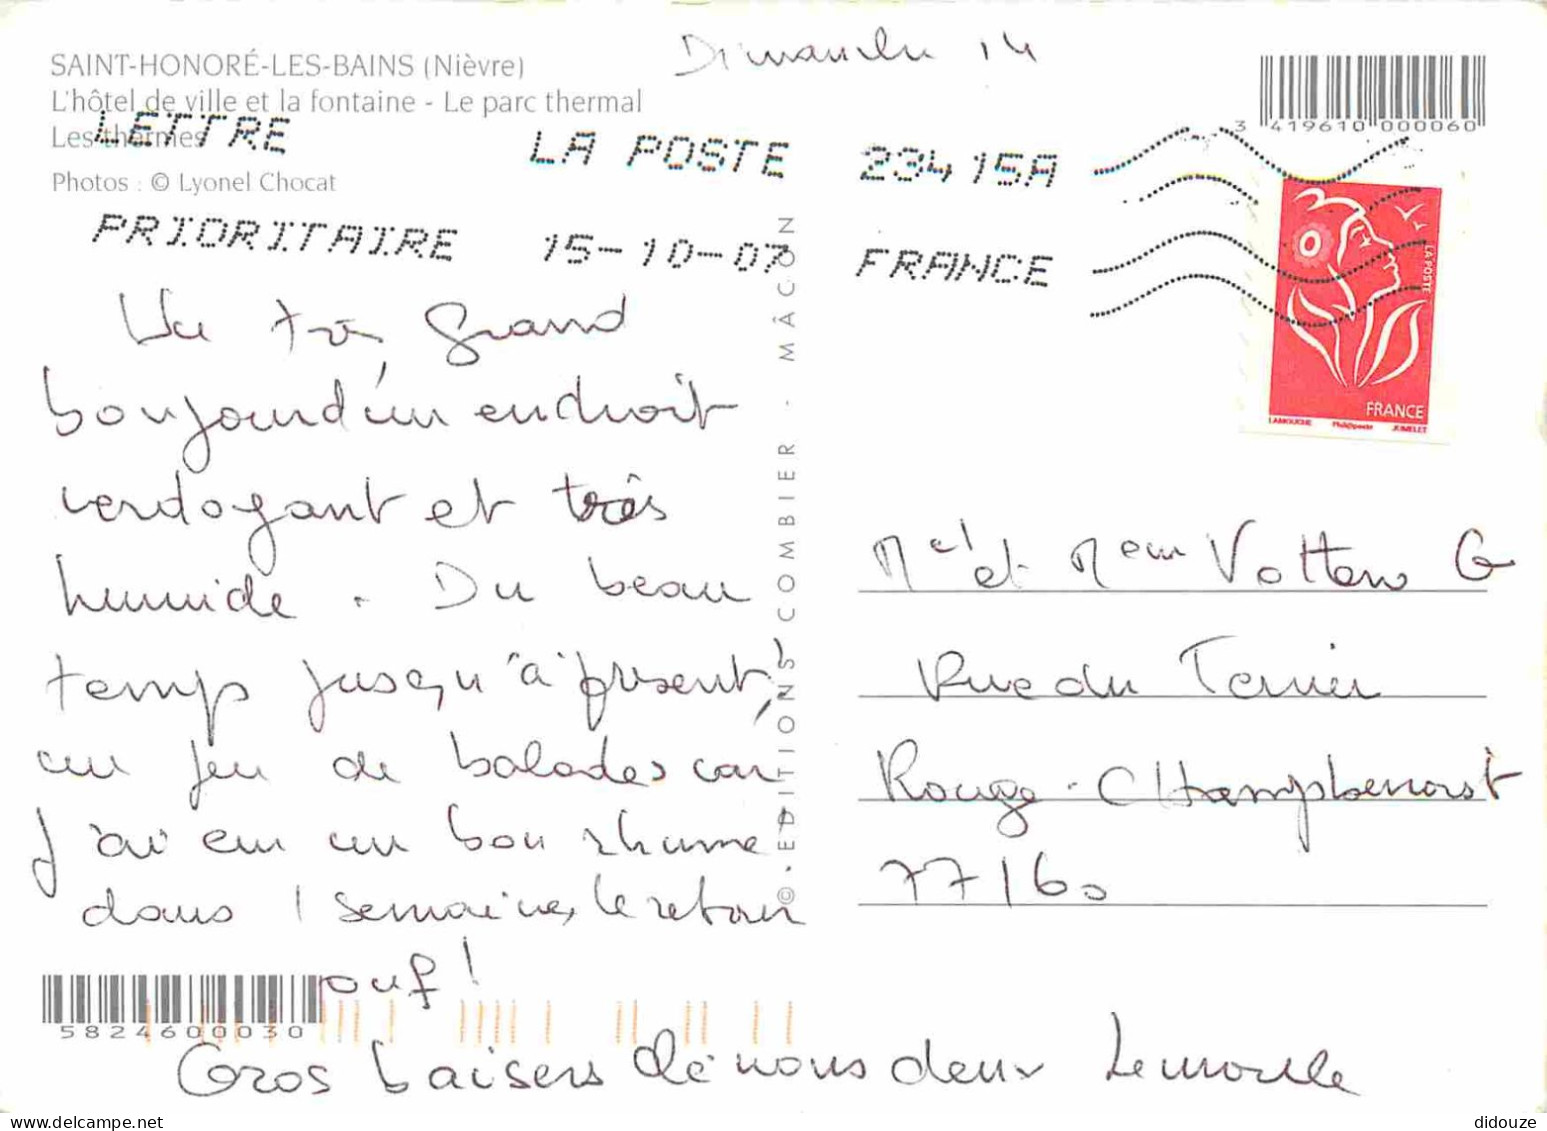 Dimanche 14
SAINT-HONORÉ-LES-BAINS (Nièvre)
L'hôtel de ville et la fontaine - Le parc thermal
Les thermes
Photos : © Lyonel Chocat
3 419610 000060
LETTRE LA POSTE 23415A
PRIORITAIRE 15-10-07 FRANCE
LA POSTE
FRANCE
LAMOUCHE Phil@poste JUMELET
Un très grand
bonjour d'un endroit
verdoyant et très
humide. Du beau
temps jusqu'à présent,
un peu de balades car
j'ai eu un bon rhume
dans 1 semaine, le retour
ouf!
Gros baisers de nous deux
© EDITIONS COMBIER - MÂCON
Mr et Mem G
Rue du Terrier
Rouge - CHampbenoist
77160
5824600030
didouze